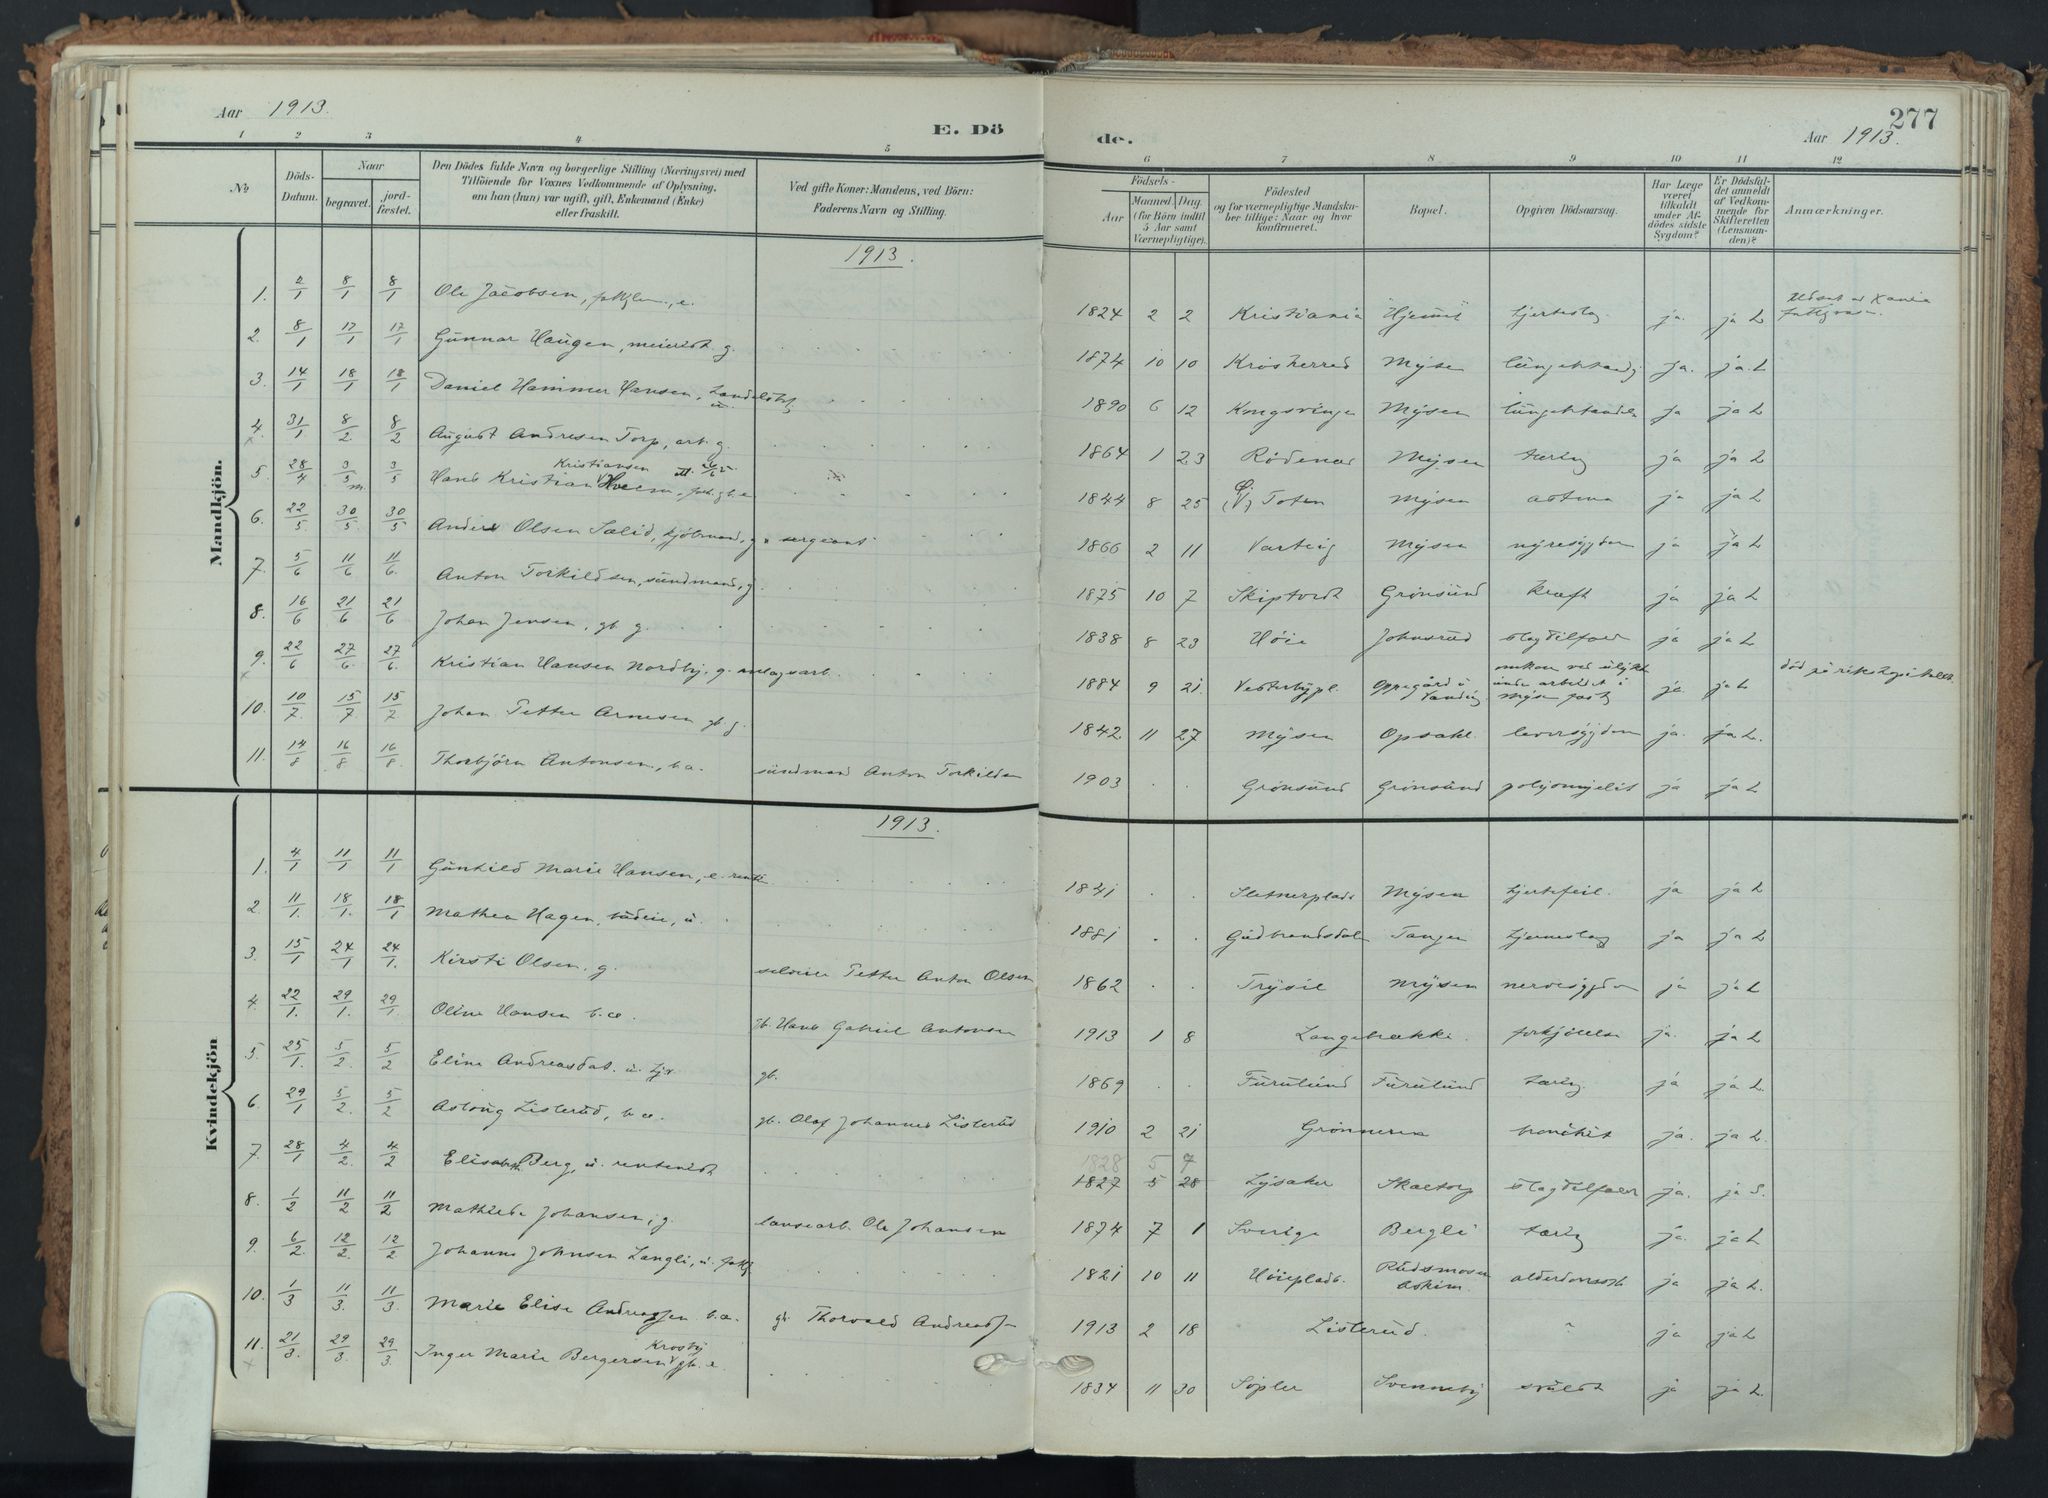 Aar 1913.
E. Dö
de.
277
Aar 1913.
1 2 3 4 5 6 7 8 9 10 11 12
No
Döds-
Datum.
Naar
begravet.
jord-
fæstet.
Den Dödes fulde Navn og borgerlige Stilling (Næringsvei) med
Tilföiende for Voxnes Vedkommende af Oplysning,
om han (hun) var ugift, gift, Enkemand (Enke)
eller fraskilt.
Ved gifte Koner: Mandens, ved Börn:
Faderens Navn og Stilling.
Födsels-
Aar
Maaned. Dag.
(for Börn indtil
5 Aar samt
Værnepligtige).
Födested
og for værnepligtige Mandsku-
ber tillige: Naar og hvor
konfirmeret.
Bopæl.
Opgiven Dödsaarsag.
Har Læge
været
tilkaldt
under Af-
dödes sidste
Sygdom?
Er Dödsfal-
det anmeldt
af Vedkom-
mende for
Skifteretten
(Lensman-
den)?
Anmærkninger.
Mandkjön.
1913.
1. 2/1 8/1 8/1 Ole Jacobsen, e. 1824 2 2 Kristiania Hjerteslag ja. ja L
2. 8/1 17/1 17/1 Gunnar Haugen, meierist g. 1874 10 10 Krosherred Mysen ja. ja. L
3. 14/1 18/1 18/1 Daniel Hammer Hansen, u. 1890 6 12 Kongsvinger Mysen ja ja L
4. x 31/1 8/2 8/2 August Andresen Torp, arb. g. 1864 1 23 Rödenes Mysen tæring ja ja L
5. 28/4 3/5 3/5 Hans Kristian Kristiansen e. 1844 8 25 (V) Ø. Toten Mysen astma ja ja L
6. 22/5 30/5 30/5 Anders Olsen Sælid, kjöbmand, g. sergeant 1866 2 11 Varteig Mysen nyresygdom ja ja L
7. 5/6 11/6 11/6. Anton Torkildsen, sundmand, g. 1875 10 7 Skiptvedt Grönsund kræft ja ja L
8. 16/6 21/6 21/6 Johan Jensen, gb. g. 1838 8 23 Höie Johnsrud slagtilfæld ja ja L
9. x 22/6 27/6. 27/6. Kristian Hansen Nordby, g. anlægsarb. 1884 9 21. Vesterbypl. Oppegård i omkom ved ulykke under arbeidet i Mysen ja. ja L död på rikshospitalet.
10. 10/7. 15/7 15/7 Johan Petter Arnesen gb. g. 1842 11 27 Mysen Opsahl. leversygdom ja. ja L.
11. 14/8 16/8 16/8. Thorbjörn Antonsen, b.a. sundmand Anton Torkildsen 1903 . . Grönsund Grönsund poliomyelit ja ja L
Kvindekjön
1913.
1. 4/1 11/1 11/1 Gunhild Marie Hansen, e. 1841 . . Sletnerplads Mysen hjertefeil. ja ja L
2. 11/1. 18/1. 18/1 Mathea Hagen, budeie, u. 1881 . . Gudbrandsdalen Tangen hjerneslag ja ja L
3. 15/1 24/1 24/1. Kirsti Olsen, g. Petter Anton Olsen 1862 . . Trysil Mysen ja ja L
4. 22/1. 29/1. 29/1 Oline Hansen b.æ. gb. Hans Gabriel Antonsen 1913 1 8 Langebrække. forkjölelse ja. ja L
5. 25/1. 5/2. 5/2 Eline Andreasdat. u. gb. 1869 . . Furulund Furulund tæring. ja ja L.
6. 29/1 5/2. 5/2 Aslaug Listerud, b.æ. gb. Olaf Johannes Listerud 1910 2 21 Grönneren bronkit ja. ja L.
7. 28/1 4/2. 4/2 Elisabeth Berg, u. rentenist 1828 5 7
1827 5 28 Lysaker slagtilfæld ja. ja S.
8. 1/2 11/2 11/2 Mathilde Johansen, g. Ole Johansen 1874 7 1 Sverige Bergli tæring ja. ja L
9. 6/2. 12/2. 12/2 Johanne Johnsen Langli, u. 1821 10 11 Höieplads. Rudsmosen Askim. ja ja L.
10. 1/3 11/3. 11/3. Marie Elise Andreassen b.æ. gb. Thorvald Andreassen 1913 2 18 Listerud. ja ja L
11. x 21/3. 29/3. 29/3. Inger Marie Bergersen Krosby gb. e. 1834 11 30 Sopler Svenneby ja ja L.